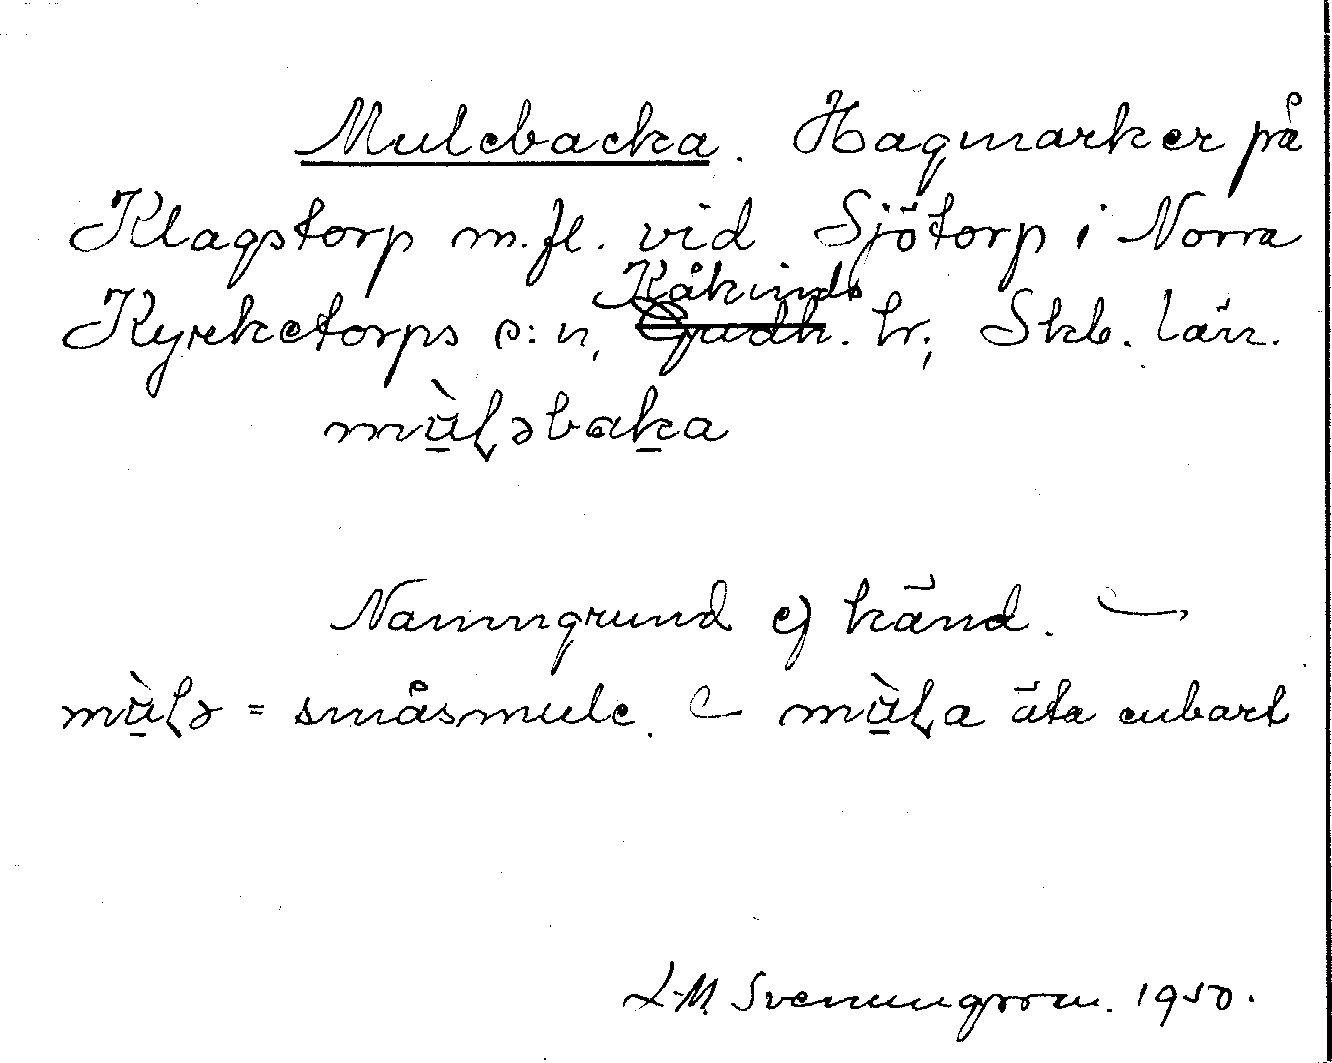 Mulebacka. Hagmarker på
Klagstorp m.fl. vid Sjötorp i Norra
Kåkinds
Kyrketorps s:n, Gudh. hr., Skb. län.
mùḷəbaka
Namngrund ej känd. —
mùḷə = småsmule. — mùḷa äta enbart
L-M Svenungsson. 1950.